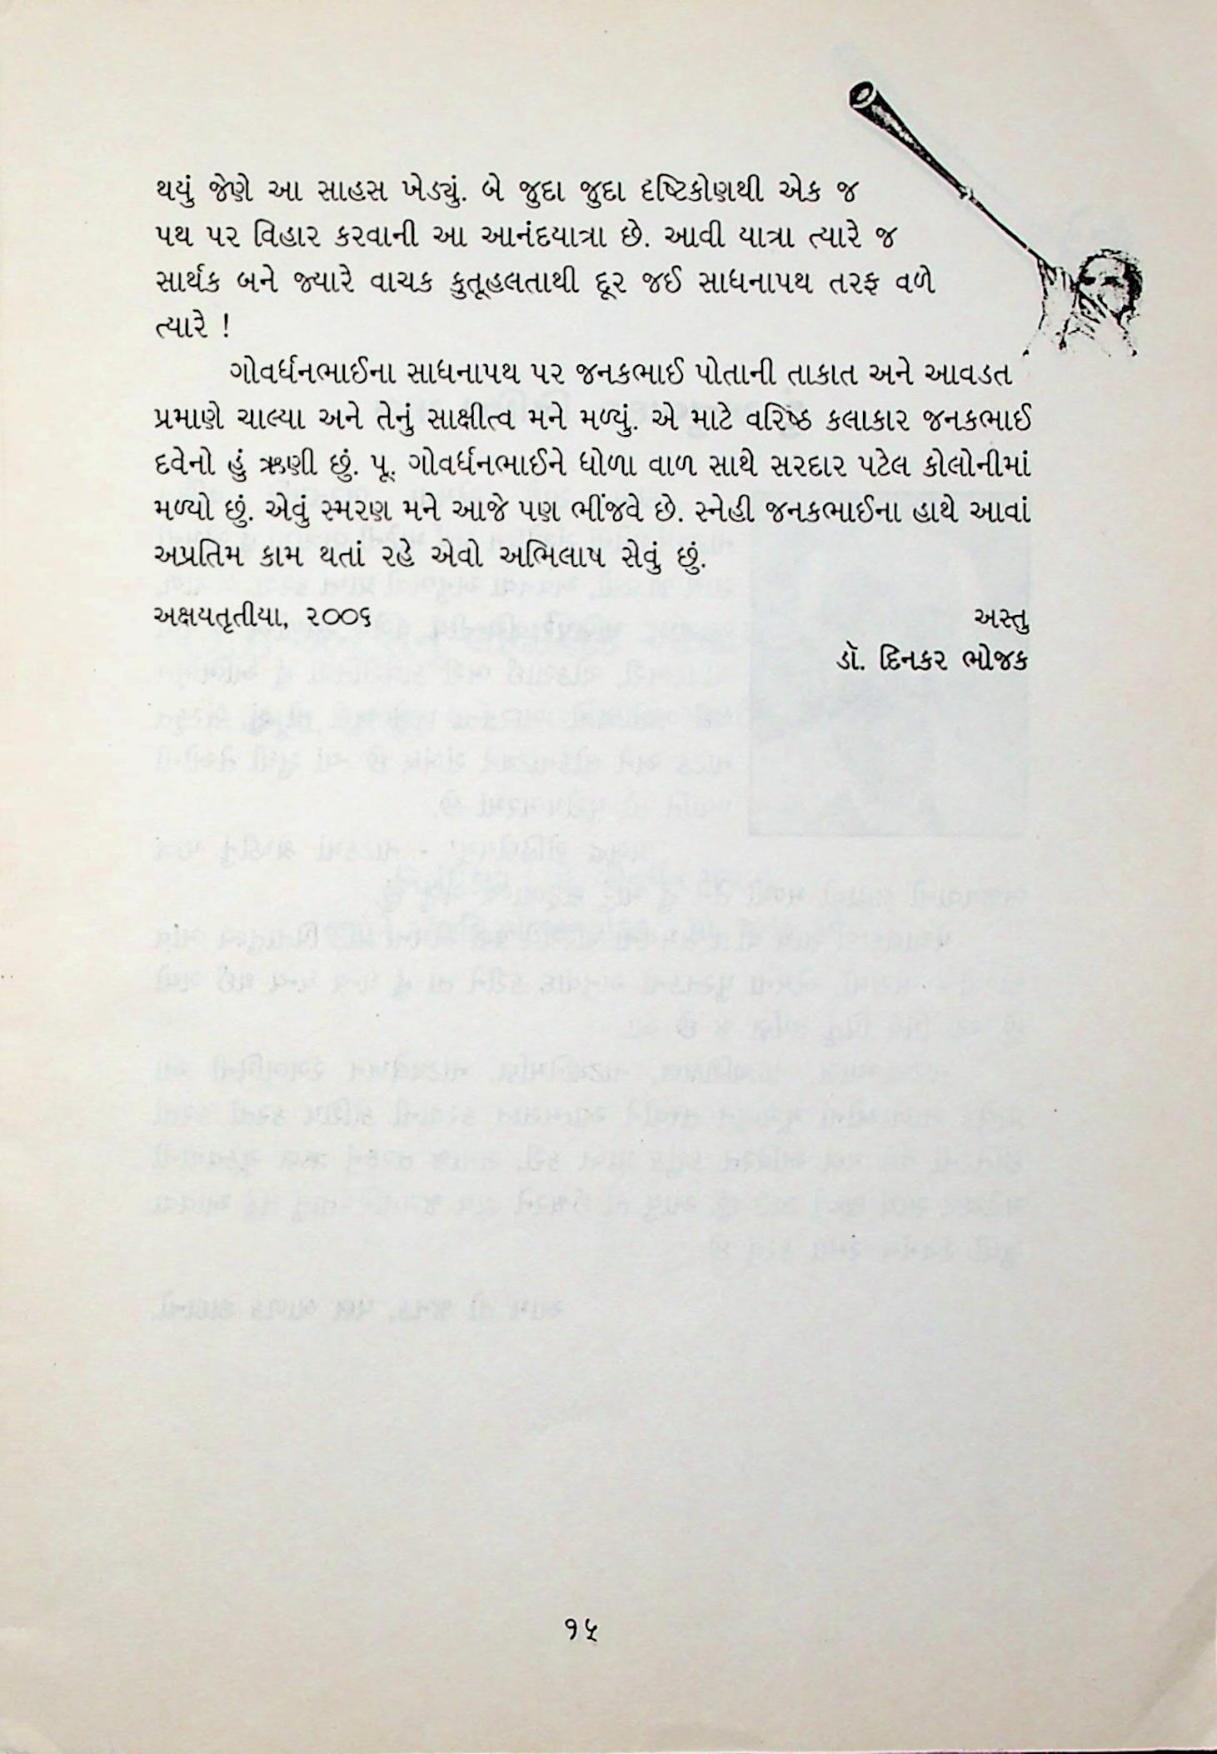 થયું જેણે આ સાહસ ખેડ્યું. બે જુદા જુદા દૃષ્ટિકોણથી એક જ
પથ પર વિહાર કરવાની આ આનંદયાત્રા છે. આવી યાત્રા ત્યારે જ
સાર્થક બને જ્યારે વાચક કુતૂહલતાથી દૂર જઈ સાધનાપથ તરફ વળે
ત્યારે !
ગોવર્ધનભાઈના સાધનાપથ પર જનકભાઈ પોતાની તાકાત અને આવડત
પ્રમાણે ચાલ્યા અને તેનું સાક્ષીત્વ મને મળ્યું. એ માટે વરિષ્ઠ કલાકાર જનકભાઈ
દવેનો હું ઋણી છું. પૂ. ગોવર્ધનભાઈને ધોળા વાળ સાથે સરદાર પટેલ કોલોનીમાં
મળ્યો છું. એવું સ્મરણ મને આજે પણ ભીંજવે છે. સ્નેહી જનકભાઈના હાથે આવાં
અપ્રતિમ કામ થતાં રહે એવો અભિલાષ સેવું છું.
અક્ષયતૃતીયા, ૨૦૦૬ અસ્તુ
ડૉ. દિનકર ભોજક
૧૫